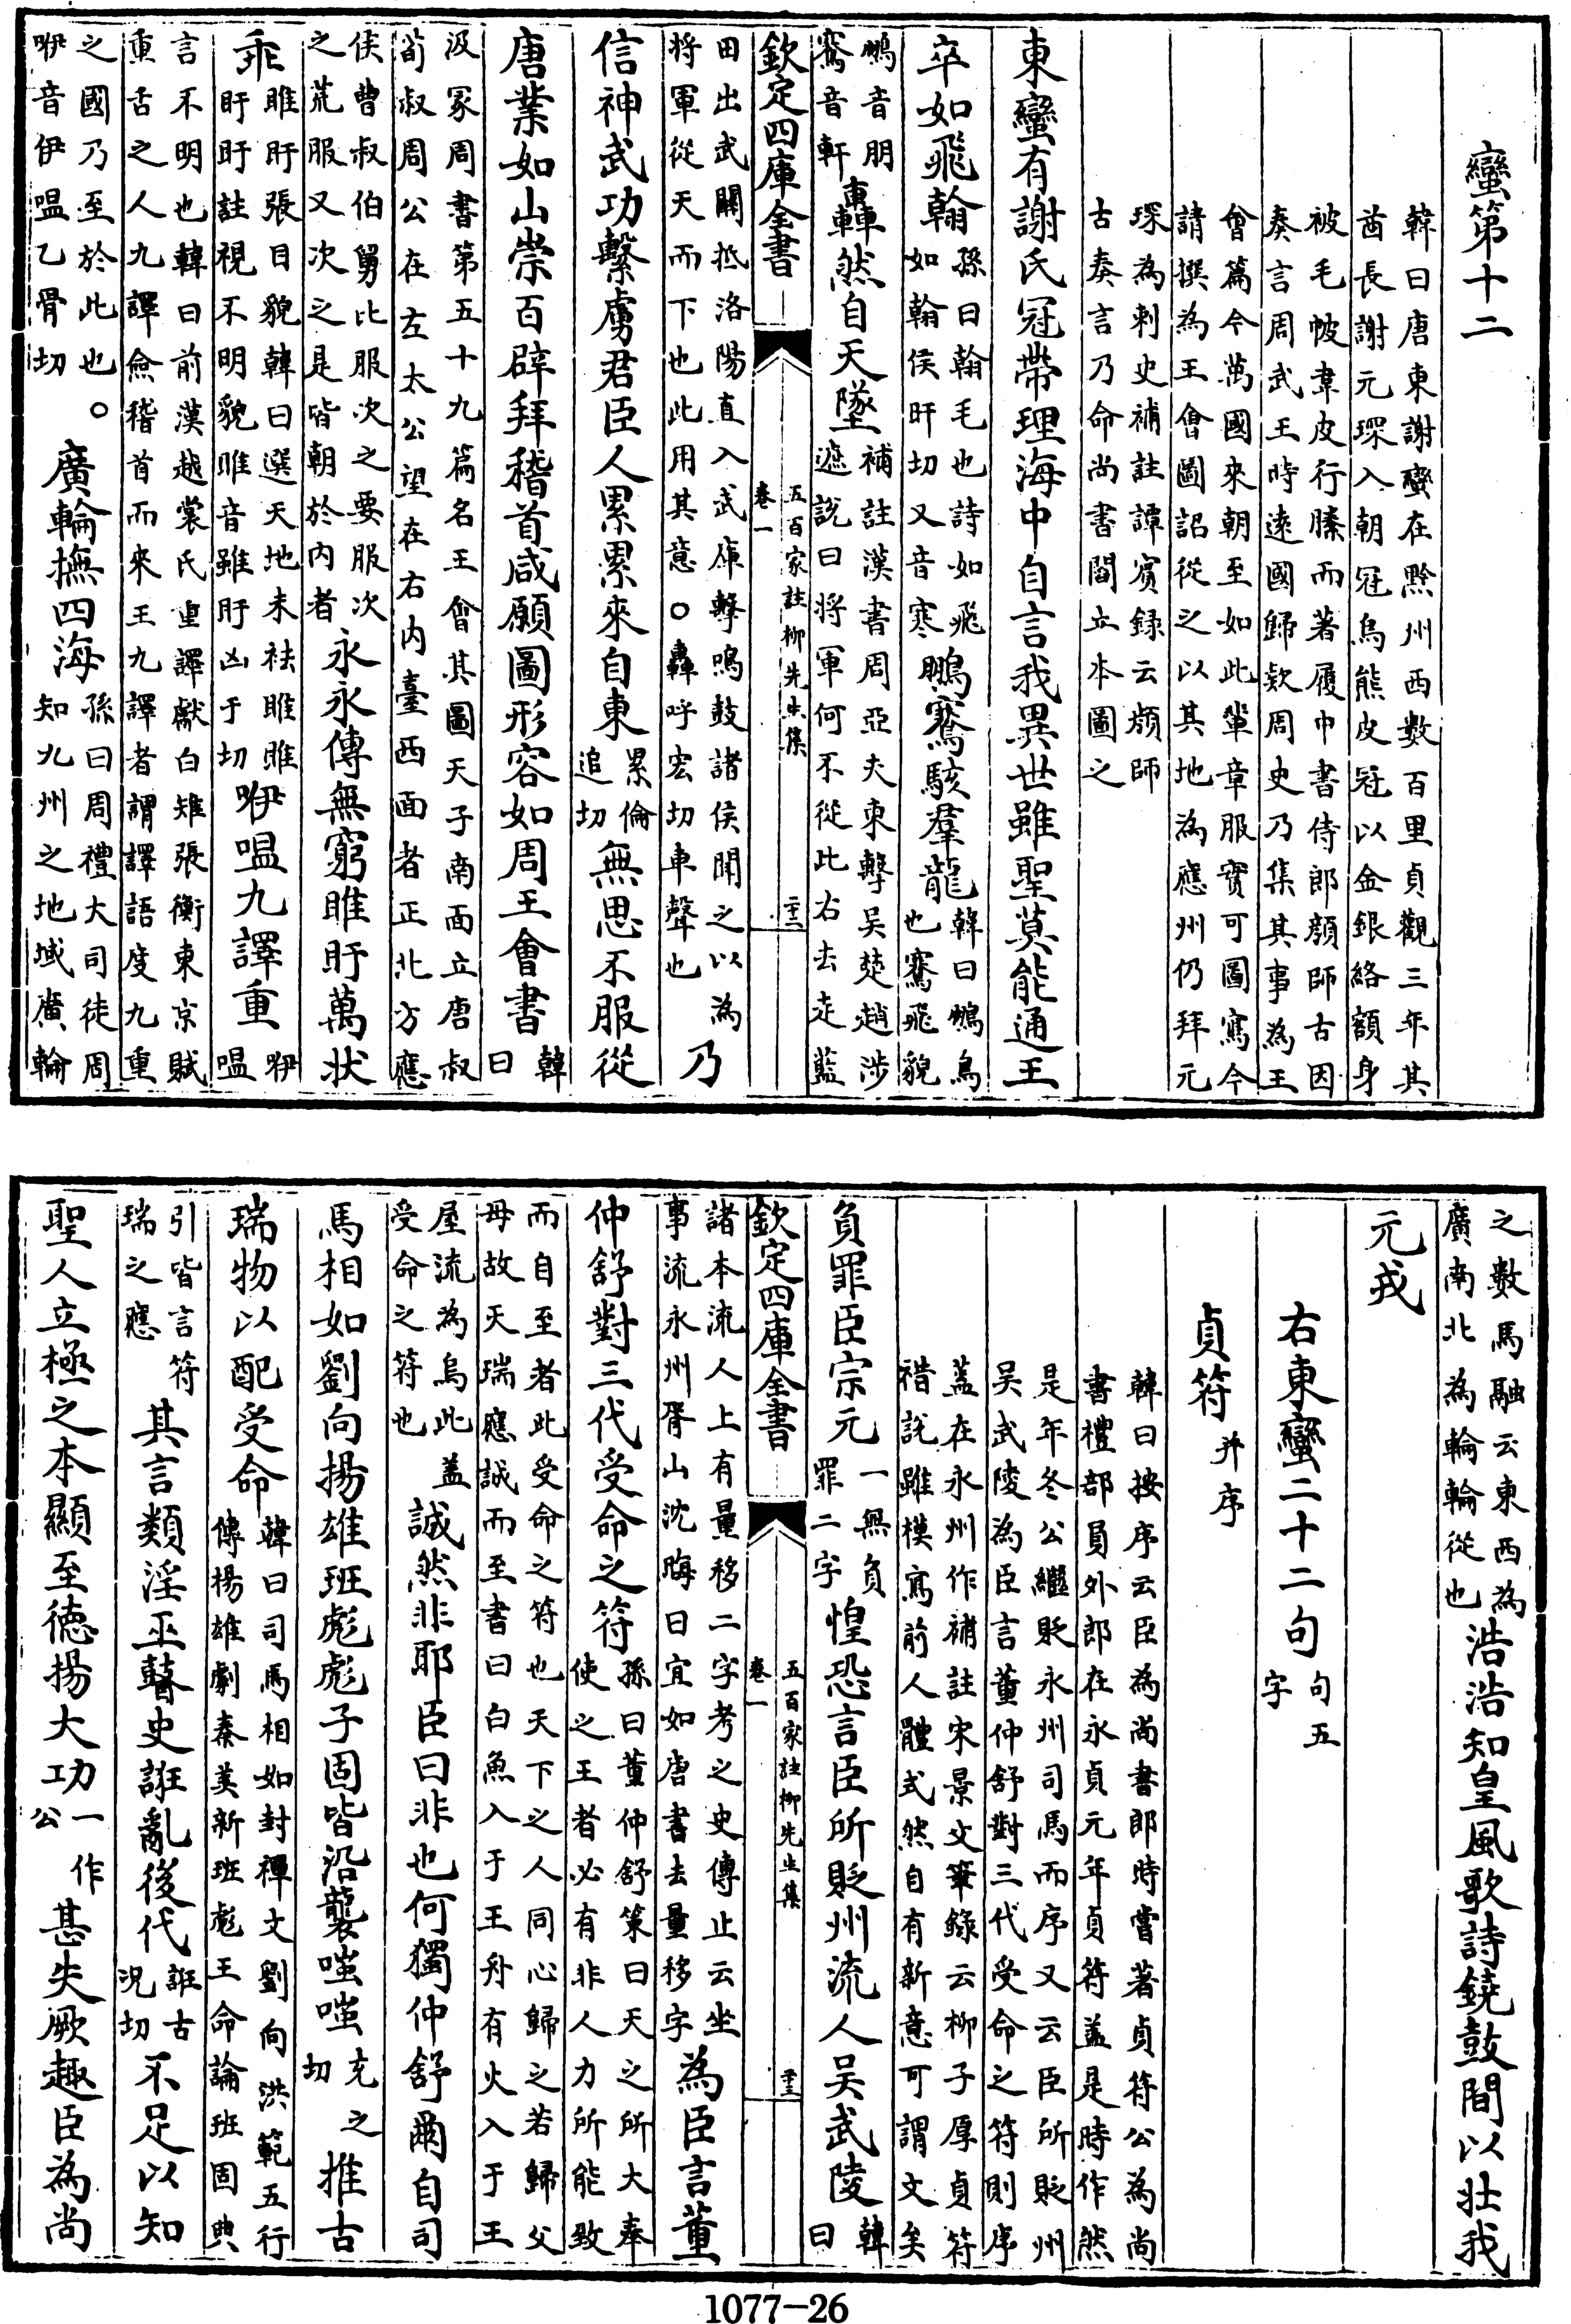 蠻第十二
韓曰唐東謝蠻在黔州西數百里貞觀三年其
酋長謝元琛入朝冠烏熊皮冠以金銀絡額身
被毛帔韋皮行縢而著履中書侍郎顏師古因
奏言周武王時遠國歸欵周史乃集其事為王
會篇今萬國來朝至如此輩章服實可圖寫今
請撰為王會圖詔從之以其地為應州仍拜元
琛為刺史補註譚賓録云顏師
古奏言乃命尚書閻立本圖之
東蠻有謝氏冠帶理海中自言我異世雖聖莫能通王
卒如飛翰孫曰翰毛也詩如飛如翰侯旰切又音寒鵬騫駭羣龍韓曰鵬鳥也騫飛貌
鵬音朋騫音軒轟然自天墜補註漢書周亞夫東擊吴楚趙涉遮說曰將軍何不從此右去走藍
欽定四庫全書
卷一
五百家註柳先生集
二十三
田出武關抵洛陽直入武庫擊鳴鼓諸侯聞之以為將軍從天而下也此用其意○轟呼宏切車聲也乃
信神武功繫虜君臣人累累來自東累倫追切無思不服從
唐業如山崇百辟拜稽首咸願圖形容如周王會書韓曰
汲冢周書第五十九篇名王會其圖天子南面立唐叔
荀叔周公在左太公望在右内臺西面者正北方應
侯曹叔伯舅比服次之要服次之荒服又次之是皆朝於内者永永傳無窮睢盱萬狀
睢盱張目貌韓曰選天地未祛睢睢盱盱註視不明貌睢音雖盱凶于切咿嗢九譯重咿嗢
言不明也韓曰前漢越裳氏重譯獻白雉張衡東京賦
重舌之人九譯僉稽首而來王九譯者謂譯語度九重
之國乃至於此也○咿音伊嗢乙骨切廣輪撫四海孫曰周禮大司徒周知九州之地域廣輪
之數馬融云東西為廣南北為輪輪從也浩浩知皇風歌詩鐃鼓間以壯我
元戎
右東蠻二十二句句五字
貞符并序
韓曰按序云臣為尚書郎時嘗著貞符公為尚
書禮部員外郎在永貞元年貞符蓋是時作然
是年冬公繼貶永州司馬而序又云臣所貶州
吴武陵為臣言董仲舒對三代受命之符則序
蓋在永州作補註宋景文筆錄云柳子厚貞符
𥛣說雖模寫前人體式然自有新意可謂文矣
負罪臣宗元一無負罪二字惶恐言臣所貶州流人吴武陵韓曰
欽定四庫全書
卷一
五百家註柳先生集
諸本流人上有量移二字考之史傳止云坐事流永州胥山沈晦曰宜如唐書去量移字為臣言董
仲舒對三代受命之符孫曰董仲舒策曰天之所大奉使之王者必有非人力所能致
而自至者此受命之符也天下之人同心歸之若歸父
母故天瑞應誠而至書曰白魚入于王舟有火入于王
屋流為烏此蓋受命之符也誠然非耶臣曰非也何獨仲舒爾自司
馬相如劉向揚雄班彪彪子固皆沿襲嗤嗤充之切推古
瑞物以配受命韓曰司馬相如封禪文劉向洪範五行傳揚雄劇秦美新班彪王命論班固典
引皆言符瑞之應其言類淫巫瞽史誑亂後代誑古况切不足以知
聖人立極之本顯至德揚大功一作公甚失厥趣臣為尚
1077-26